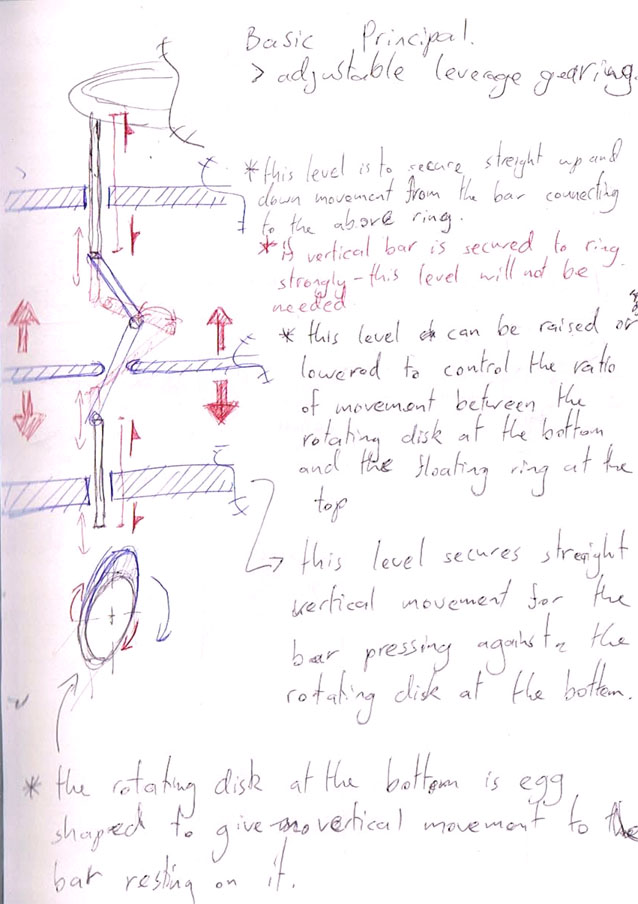 Basic Principal.
> adjustable leverage gearing.
* this level is to secure streight up and
down movement from the bar connecting
to the above ring.
* if vertical bar is secured to ring
strongly - this level will not be
needed
* this level can be raised or
lowered to control the ratio
of movement between the
rotating disk at the bottom
and the floating ring at the
top
this level secures streight
vertical movement for the
bar pressing against the
rotating disk at the bottom.
* the rotating disk at the bottom is egg
shaped to give vertical movement to the
bar resting on it.